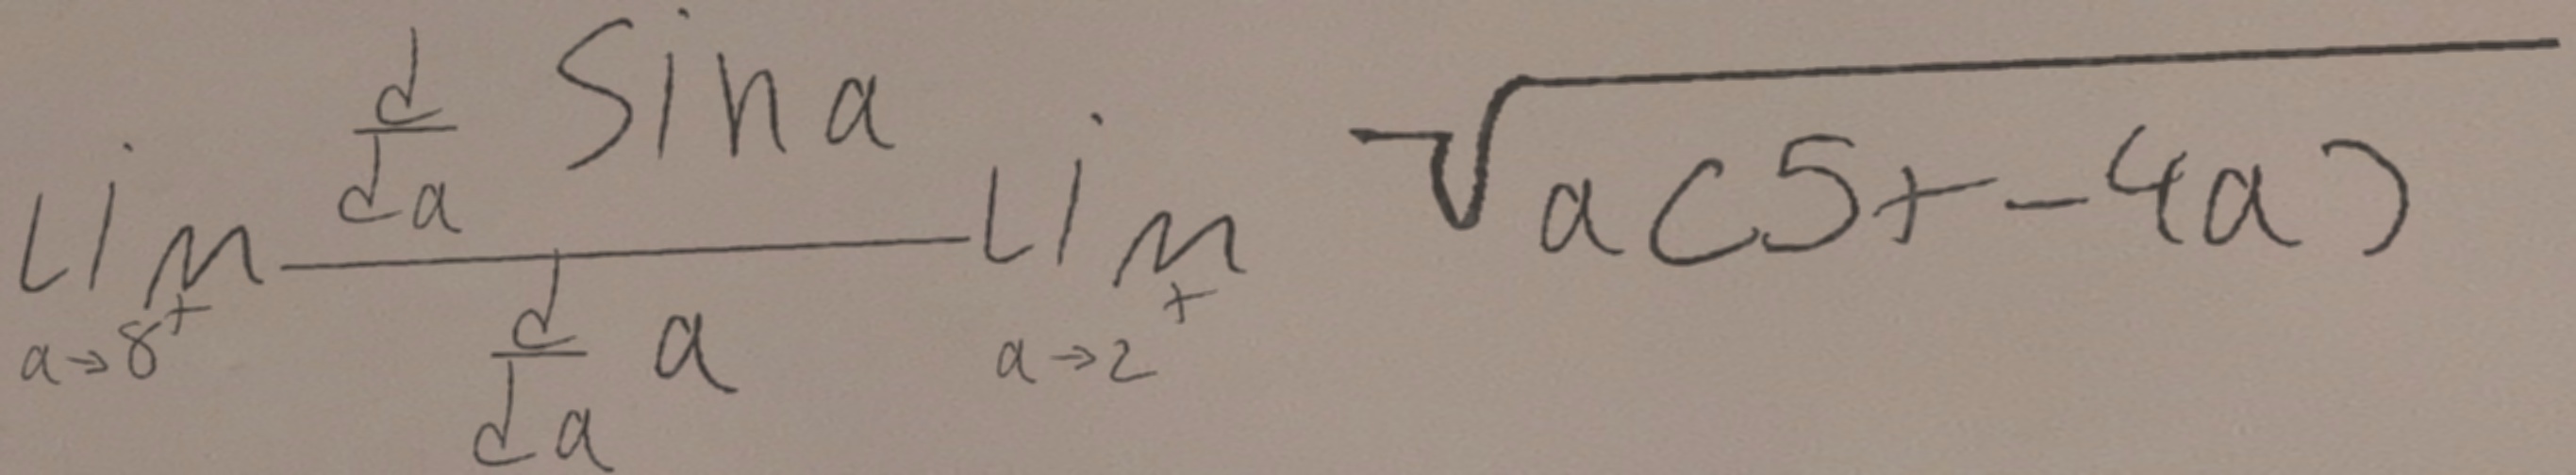 \lim_{a \to 8^+} \frac{\frac{d}{da} \sin a}{\frac{d}{da} a} \lim_{a \to 2^+} \sqrt{a(5+-4a)}